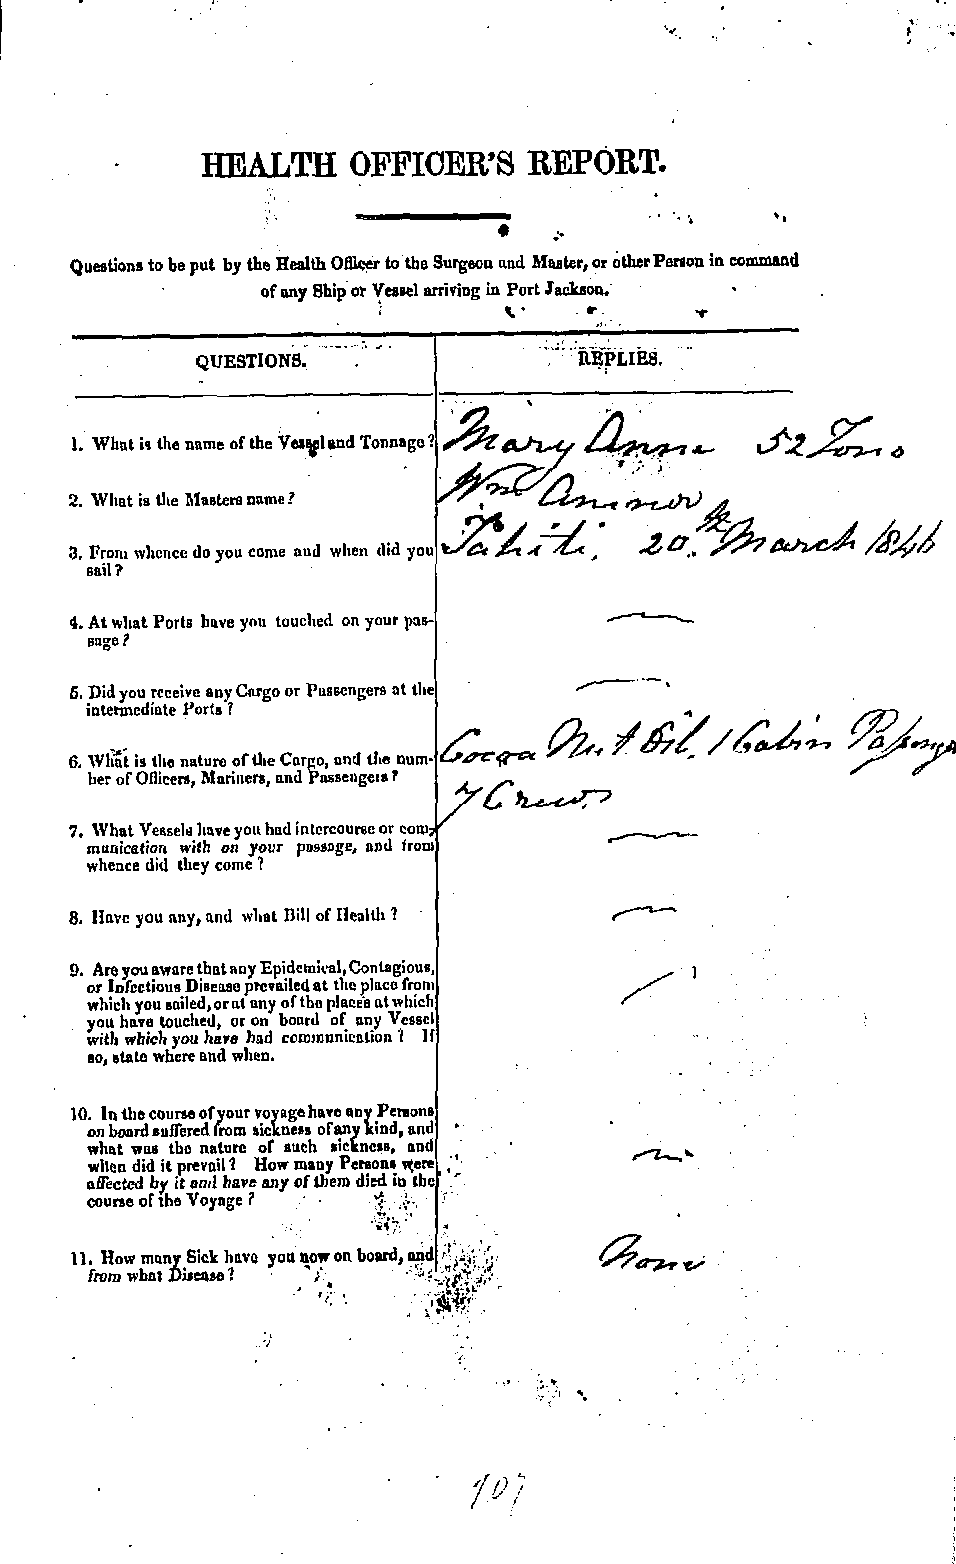 HEALTH OFFICER'S REPORT.
Questions to be put by the Health Officer to the Surgeon and Master, or other Person in command
of any Ship or Vessel arriving in Port Jackson.
QUESTIONS.
REPLIES.
1. What is the name of the Vessel and Tonnage?
Mary Anne 52 Tons
2. What is the Masters name?
Wm
3. From whence do you come and when did you
sail?
Tahiti, 20th March 1846
4. At what Ports have you touched on your pas-
sage?
5. Did you receive any Cargo or Passengers at the
intermediate Ports?
6. What is the nature of the Cargo, and the num-
ber of Officers, Mariners, and Passengers?
Cocoa Nut Oil. 1 Cabin
7 Crew.
7. What Vessels have you had intercourse or com-
munication with on your passage, and from
whence did they come?
8. Have you any, and what Bill of Health?
9. Are you aware that any Epidemical, Contagious,
or Infectious Disease prevailed at the place from
which you sailed, or at any of the places at which
you have touched, or on board of any Vessel
with which you have had communication? If
so, state where and when.
10. In the course of your voyage have any Persons
on board suffered from sickness of any kind, and
what was the nature of such sickness, and
when did it prevail? How many Persons were
affected by it and have any of them died in the
course of the Voyage?
11. How many Sick have you now on board, and
from what Disease?
None
107